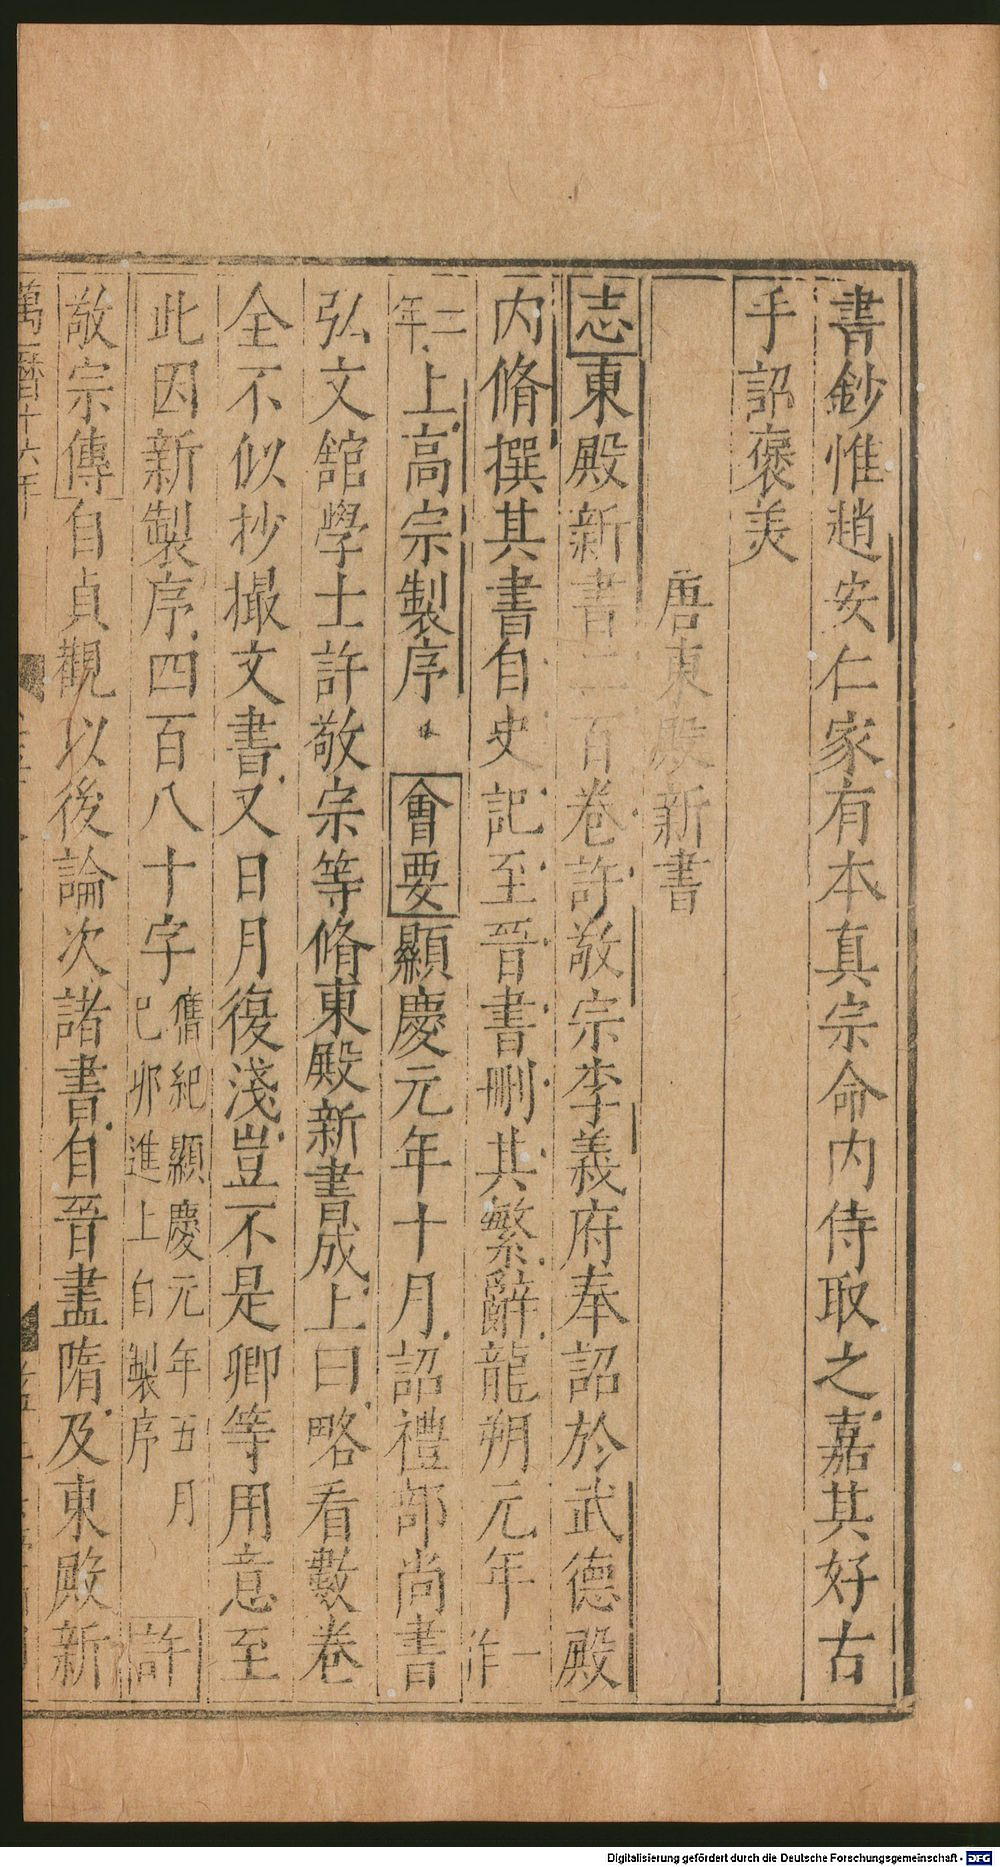 書鈔惟趙安仁家有本真宗命内侍取之嘉其好古
手詔褒美
唐東殿新書
志東殿新書二百卷許敬宗李義府奉詔於武德殿
内脩撰其書自史記至晉書刪其繁辭龍朔元年一作
二年上高宗製序 會要顯慶元年十月詔禮部尚書
弘文館學士許敬宗等脩東殿新書成上曰略看數卷
全不似抄撮文書又日月復淺豈不是卿等用意至
此因新製序四百八十字舊紀顯慶元年五月己卯進上自製序許
敬宗傳自貞觀以後論次諸書自晉盡隋及東殿新
萬曆十六年
Digitalisierung gefördert durch die Deutsche Forschungsgemeinschaft - DFG